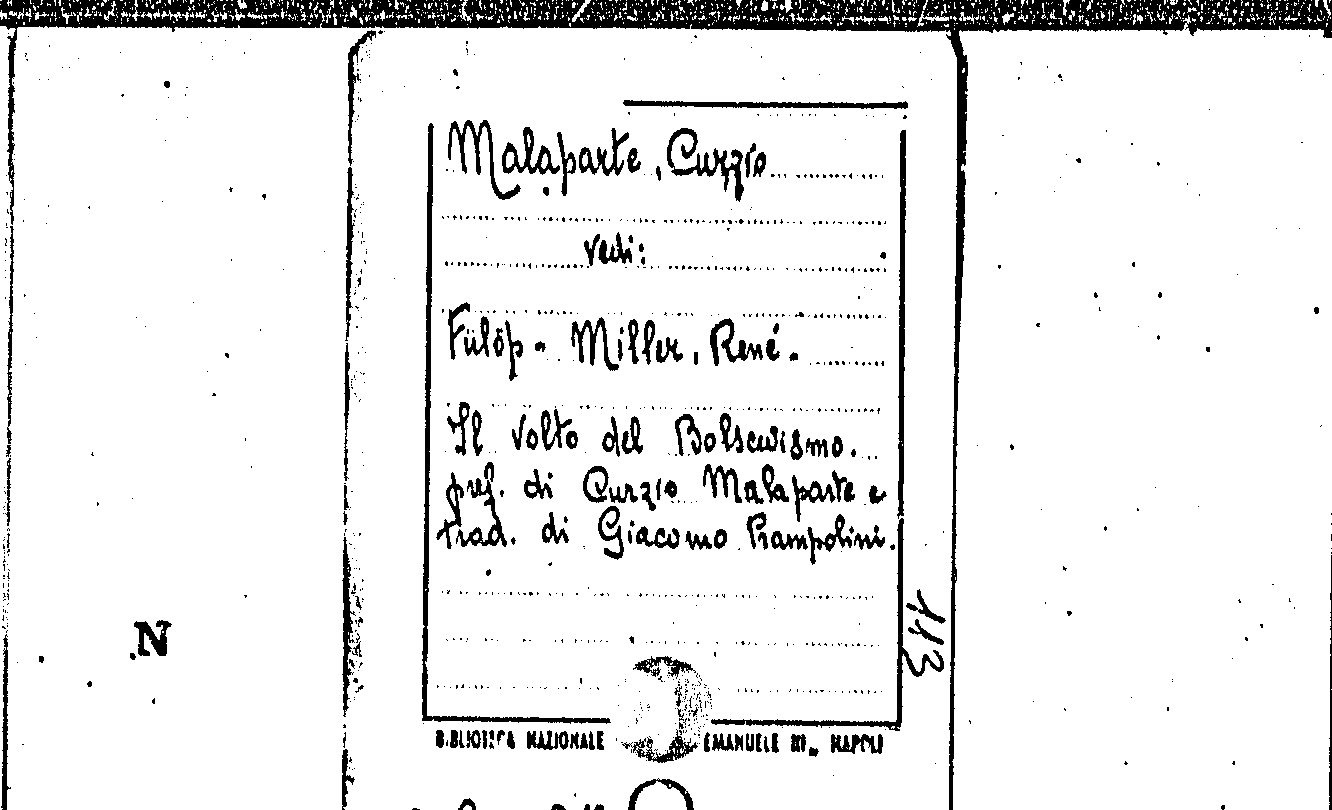 Malaparte, Curzio
vedi:
Fülöp - Miller, René.
Il volto del Bolscevismo.
pref. di Curzio Malaparte e
trad. di Giacomo Prampolini.
113
N
BIBLIOTECA NAZIONALE EMANUELE III„ NAPOLI